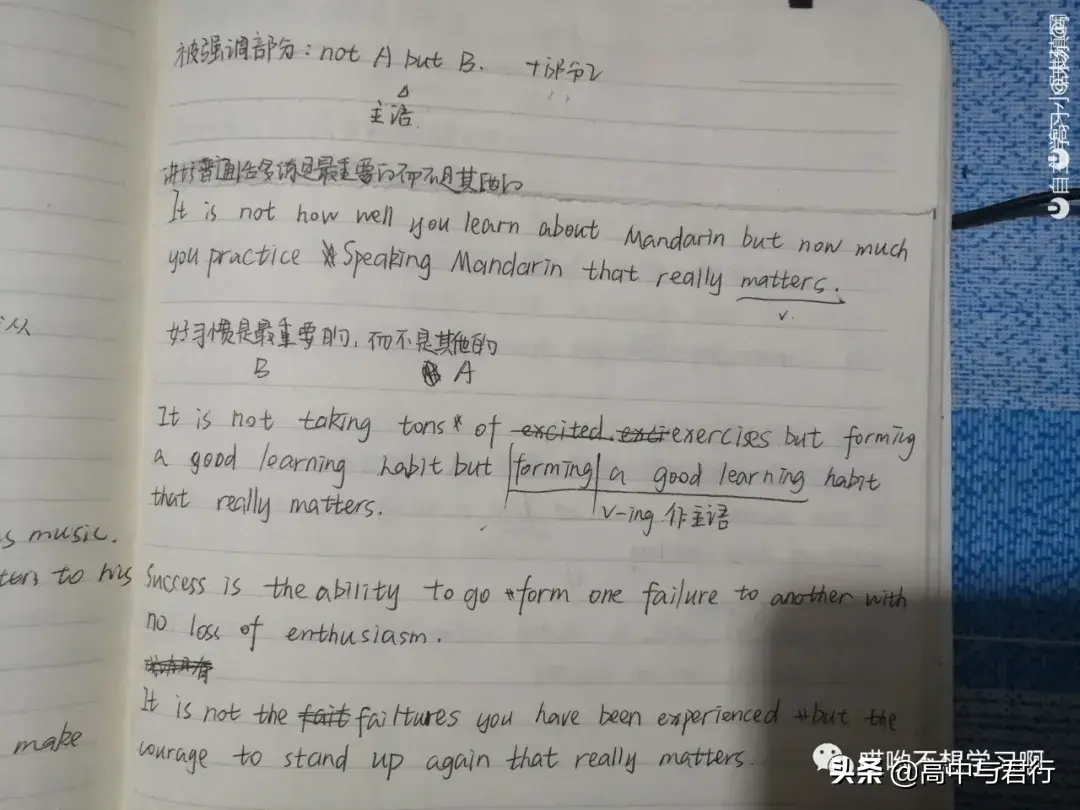 被强调部分：not A but B. +部分2
主语.
讲好普通话多练是最重要的而不是其他的
It is not how well you learn about Mandarin but now much
you practice Speaking Mandarin that really matters.
v.
好习惯是最重要的，而不是其他的
B A
It is not taking tons of excited exci exercises but forming
a good learning habit but forming a good learning habit
that really matters.
v-ing 作主语
s music.
ters to his
Success is the ability to go form one failure to another with
no loss of enthusiasm.
It is not the fait failtures you have been experienced but the
courage to stand up again that really matters.
make
哎哟不想学习啊
头条 @高中与君行